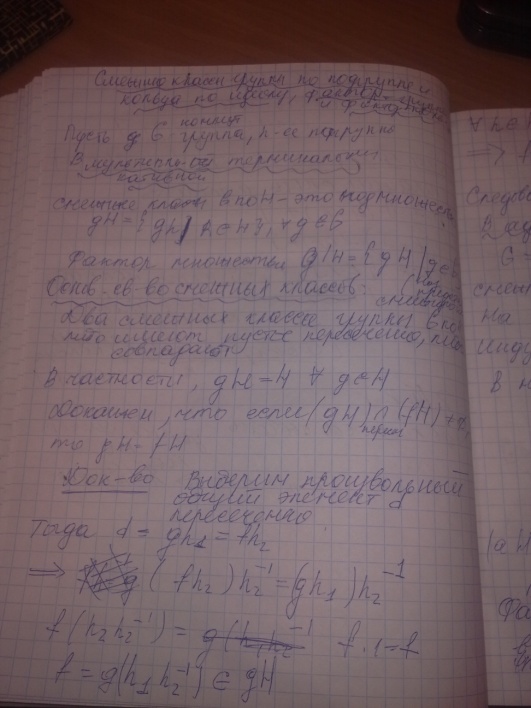 Смежные классы группы по подгруппе и
кольца по идеалу, фактор-группа
и фактор
коммут
Пусть G - группа, H - её подгруппа
В мультипликативной терминологии
смежные классы G по H - это подмножества
gH = { gh | h ∈ H }, ∀ g ∈ G
Фактор множество G/H = { gH | g ∈ G
Основ. св-во смежных классов:
Два смежных класса группы G по
либо имеют пустое пересечение, либо
совпадают
В частности, gH = H ∀ g ∈ H
Докажем, что если (gH) ∩ (fH) ≠
то gH = fH
Док-во Выберем произвольный
общий элемент d
пересечения
Тогда d = gh₁ = fh₂
⇒ (fh₂)h₂⁻¹ = (gh₁)h₂⁻¹
f(h₂h₂⁻¹) = f·1 = f
f = g(h₁h₂⁻¹) ∈ gH
∀ h ∈
⇒
Следов
G =
смежн
На
инду
В
|aH
Фа